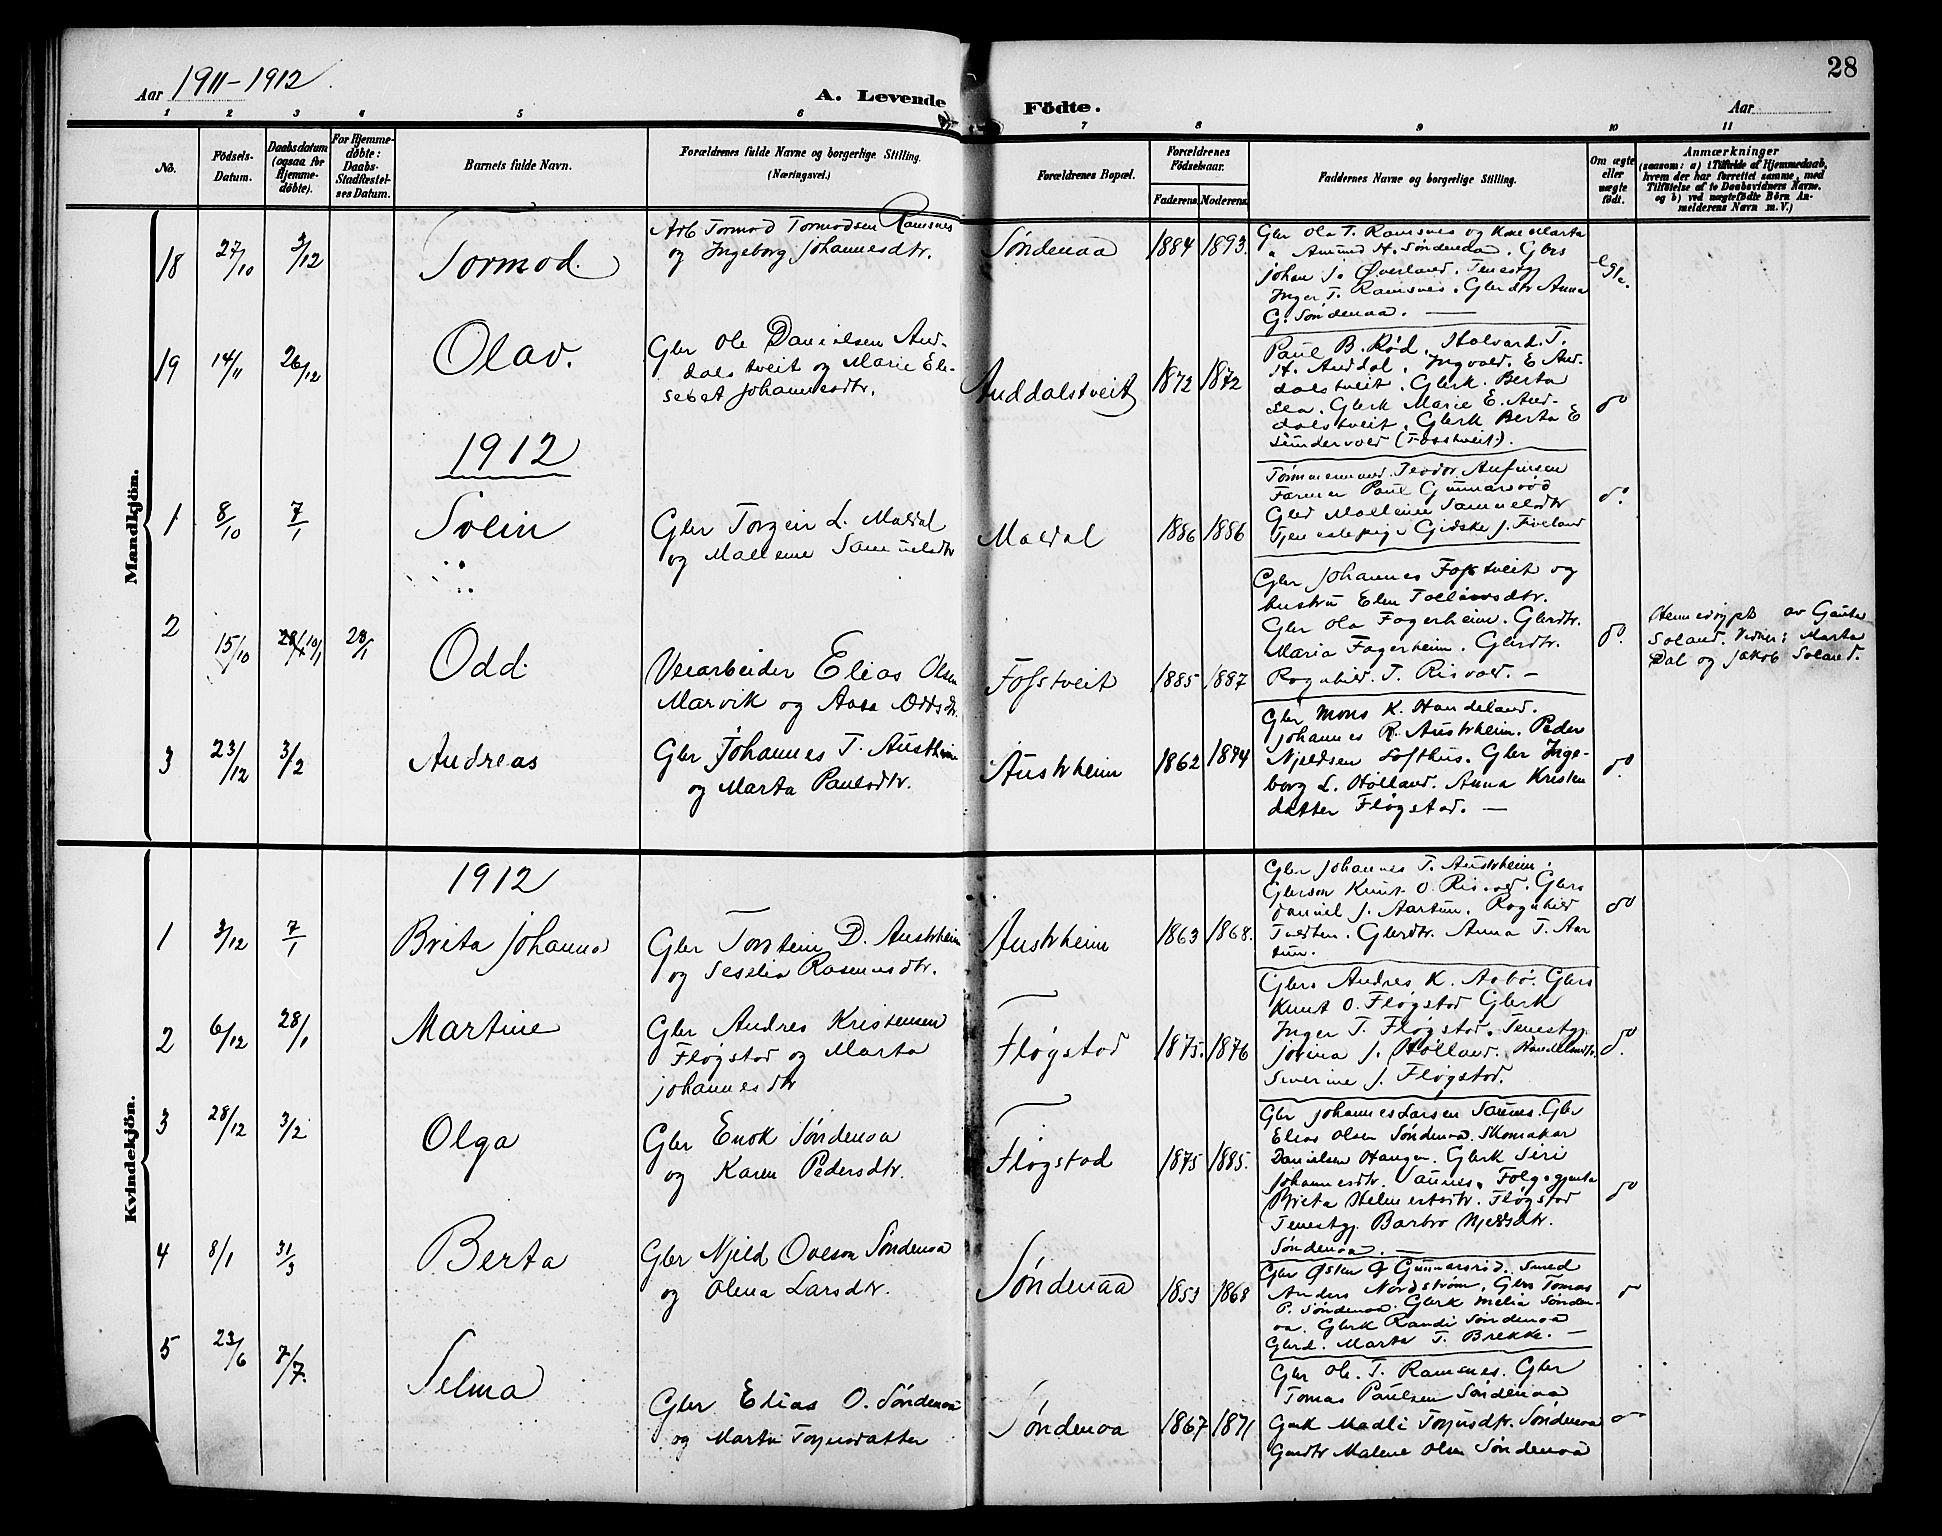 28
Aar 1911-1912
A. Levende Födte.
Aar
1 2 3 4 5 6 7 8 9 10 11
No.
Födsels-Datum.
Daabsdatum (ogsaa for Hjemmedøbte).
For Hjemmedøbte: Daabs-Stadfæstelses Datum.
Barnets fulde Navn.
Forældrenes fulde Navne og borgerlige Stilling.
(Næringsvei.)
Forældrenes Bopæl.
Forældrenes Födselsaar.
Faderens. Moderens.
Faddernes Navne og borgerlige Stilling.
Om ægte eller uægte født.
Anmærkninger
(saasom: a) i Tilfælde af Hjemmedaab,
hvem der har forrettet samme, med
Tilføielse af to Daabsvidners Navne.
og b) ved uægtefødte Börn Anmelderens
Navn m. V.)
Mandkjön.
18 27/10 3/12 Tormod.
Arb Tormod Tormodsen Ramsnes
og Ingeborg Johannesdtr.
Søndenaa 1884 1893.
Gbr Ola T. Ramsnes og Kone Marta
a Amund H. Søndenaa. Gbrs
Johan J. Øverland. Tenestpg
Inger T. Ramsnes. Gbrdtr Anna
G. Søndenaa.
19 14/11 26/12 Olav.
Gbr Ole Danielsen Aud-
dalstveit og Marie Eli-
sebet Johannesdtr.
Auddalstveit 1872 1872
Paul B. Rød. Halvard T.
H. Auddal. Ingvald E. Aud-
dalstveit. Gbrk. Berta
Lea. Gbrk Marie E. Aud-
dalstveit. Gbrk Berta E
(Fosstveit).
do
1912
1 8/10 7/1 Svein
Gbr Torgeir L. Maldal
og Mallene Samuelsdtr
Maldal 1886 1886
Tømmermand Teodor Aufinsen
Farmer Paul Gunnarsrød
Mallene Samuelsdtr
Tjenestepige Gidske J. Fiveland
do.
2 15/10 28/1 10/1 28/1 Odd.
Verarbeider Elias Olsen
Marvik og Aasa Oddsdtr.
Fosstveit 1885 1887
Gbr Johannes Fosstveit og
hustru Elen Tollevsdtr.
Gbr Ola Fagerheim. Gbrdtr.
Maria Fagerheim. Gbrdtr.
Ragnhild T. Risvold. —
do.
Heimedøypt av Gauta
Soland. Vidner: Marta
Dal og Jakob Soland.
3 23/12 3/2 Andreas
Gbr Johannes T. Austrheim
og Marta Paulsdtr.
Austrheim 1862 1874
Gbr Mons K. Handeland.
Johannes R. Austrheim. Peder
Njeldsen Lofthus. Gbr Inge-
borg L. Hølland. Anna Kristen
datter Fløgstad. —
do.
Kvindekjön.
1912
1 3/12 7/1 Brita Johanna
Gbr Torstein D. Austrheim
og Seselia Rasmusdtr.
Austrheim 1863 1868.
Gbr Johannes T. Austrheim.
Gbrson Knut O. Risvold. Gbrs
Daniel J. Aartun. Ragnhild
Tveiten. Gbrdtr. Anna T. Aar
tun.
do
2 6/12 28/1 Martine
Gbr Andres Kristensen
Fløgstad og Marta
Johannesdtr
Fløgstad 1875. 1876
Gbrs Andres K. Aabø. Gbrs
Knut O. Fløgstad Gbrk
Inger T. Fløgstad. Tenestpg.
Jorina J. Hølland.
Severine J. Fløgstad.
do.
3 28/12 3/2 Olga
Gbr Enok Søndenaa
og Karen Pedersdtr.
Fløgstad 1875 1885.
Gbr Johannes Larsen Saunes. Gbr
Elias Olsen Søndenaa. Skomakar
Danielsen Hauge. Gbrk Siri
Johannesdtr. Saunes. Følgegjenta
Brita Helmertsdtr. Fløgstad
Tenestpg. Barbro Njeldsdtr.
Søndenaa. —
do
4 8/1 31/3 Berta
Gbr Njeld Oveson Søndenaa
og Olena Larsdtr.
Søndenaa 1853 1868
Gbr Østen G Gunnarsrød. Smed
Anders Nordstrøm. Gbrs Tomas
P. Søndenaa. Gbrk Melia Sønden-
aa. Gbrk Randi Søndenaa
Gbrd. Marta T. Brekke. —
5 23/6 7/7. Selma
Gbr Elias O. Søndenaa
og Marta Torjusdatter
Søndenaa 1867 1871
Gbr Ole. T. Ramsnes. Gbr
Tomas Paulsen Søndenaa
Gbrk Madli Torjusdtr. Søndenaa
Gbrdtr Malene Olsen Søndenaa